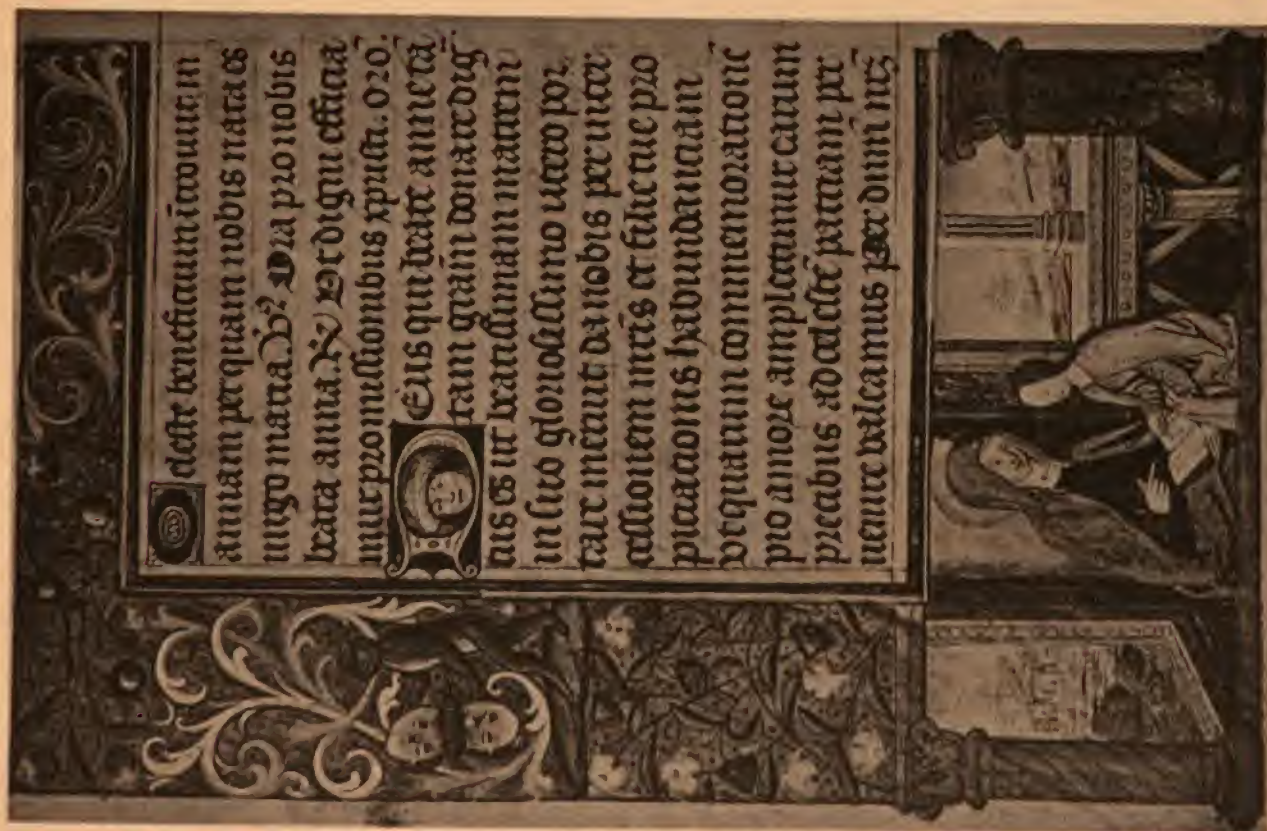 O celeste beneficium ītroiuit in
annam per quam nobis nata es
uirgo maria V̄. Ora pro nobis
beata anna R̄ Vt digni efficia
mur promissionibus xp̄isti. oro.
Deus qui beate anne tā
tam grām̄ donare dig̃
tus es ut beatissimam matrem
in suo gloriosissimo utero por
tare meruit da nobis per inter
cessionem mr̄is et filie tue pro
piciacionis habundanciam
vt quarum commemorationē
pio amore amplectamur earum
precibus ad celestē patriam per
uenire valeamus Per dn̄m nr̄ꝫ